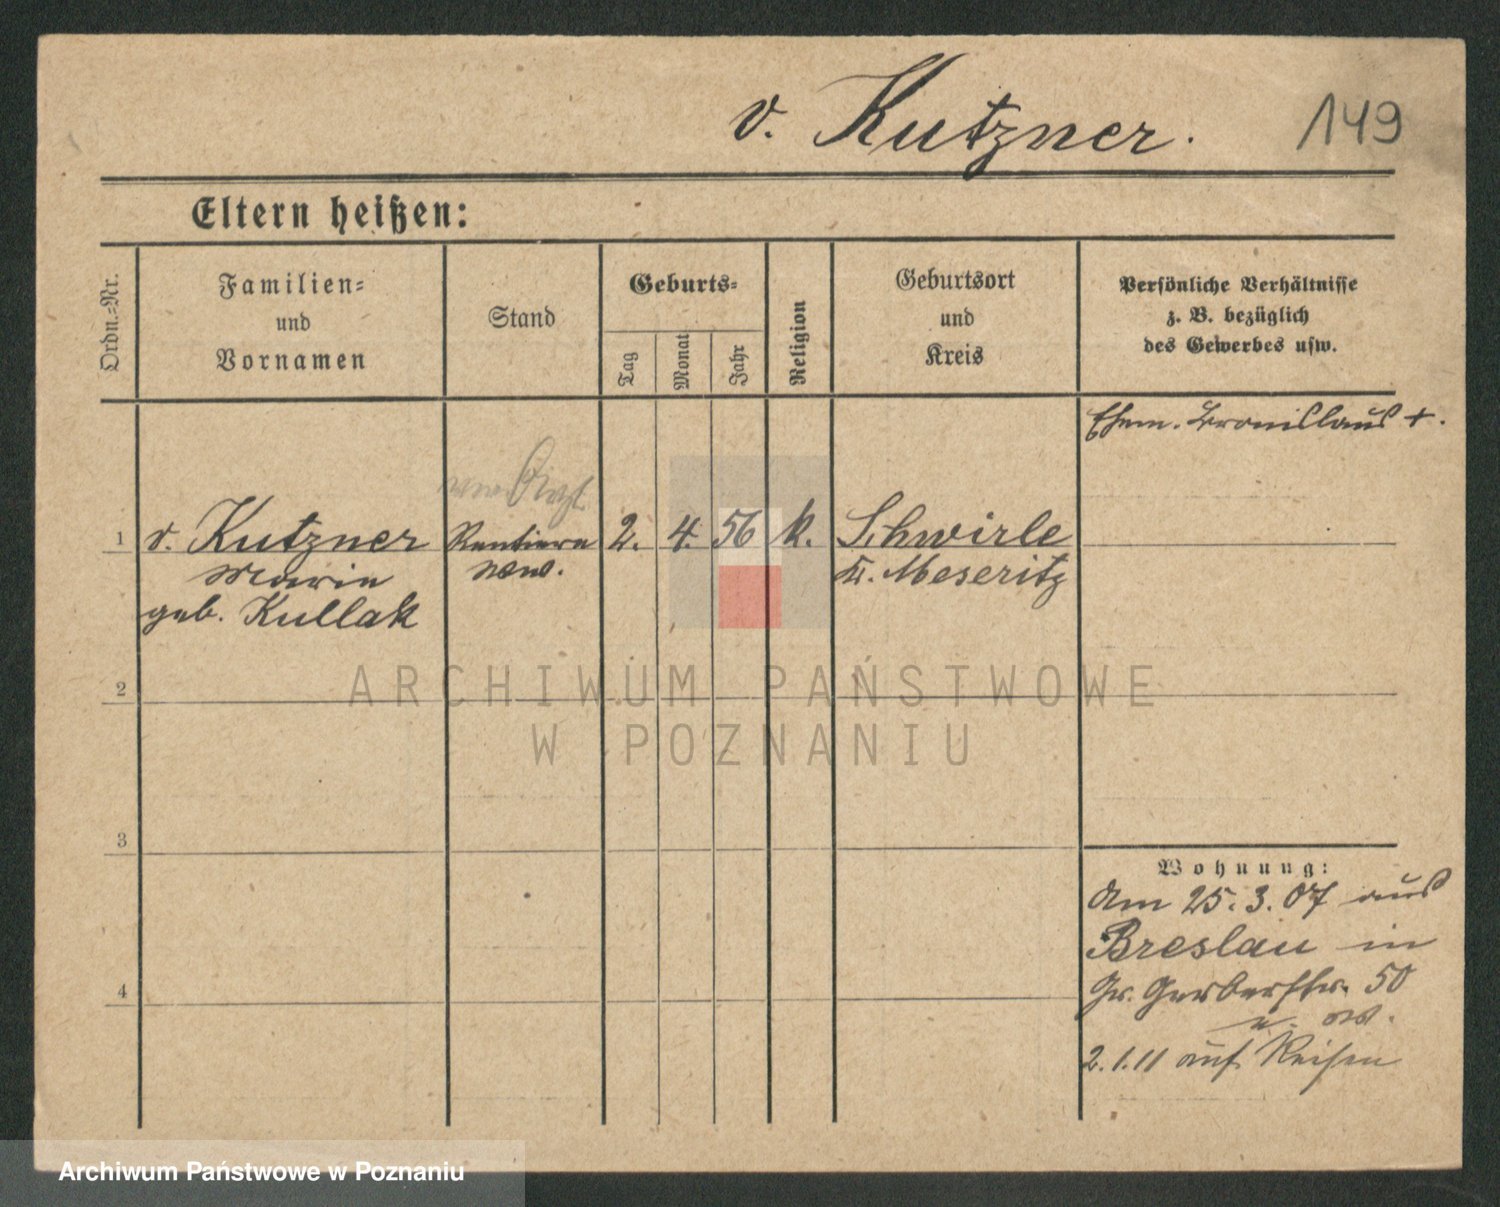 v. Kutzner.
149
Eltern heißen:
Ordn.-Nr.
Familien-
und
Vornamen
Stand
Geburts-
Tag
Monat
Jahr
Religion
Geburtsort
und
Kreis
Persönliche Verhältnisse
z. B. bezüglich
des Gewerbes usw.
Ehem. Bronislaus +.
1
v. Kutzner
Marie
geb. Kullak
Rentiere
Ww.
2.
4.
56
k.
Schwirle
K. Meseritz
2
3
4
Wohnung:
Am 25.3.07 aus
Breslau in
Gr. Gerberstr. 50
2.1.11 auf Reisen
ARCHIWUM PAŃSTWOWE
W POZNANIU
Archiwum Państwowe w Poznaniu